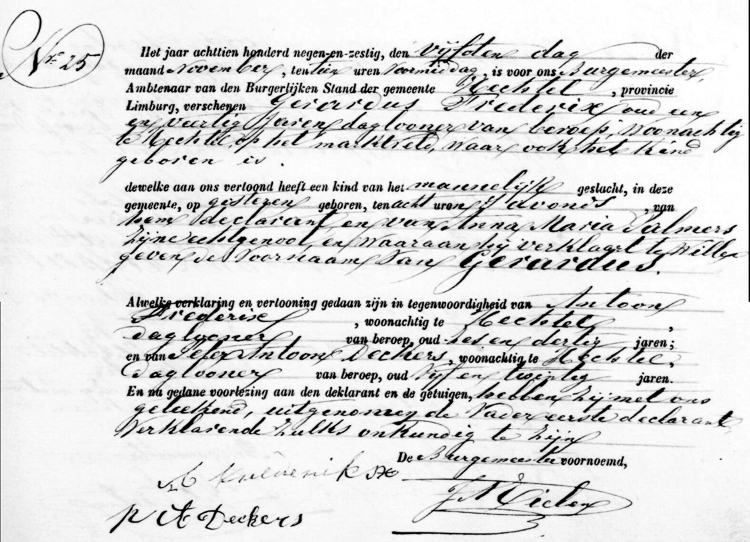 Nr 25
Het jaar achttien honderd negen-en-zestig, den vyfden dag der
maand November, ten tien uren Voormiddag, is voor ons Burgemeester,
Ambtenaar van den Burgerlijken Stand der gemeente Hechtel, provincie
Limburg, verschenen Gerardus Frederix oud een
en veertig Jaren daglooner van beroep, woonachtig
te Hechtel op het marktveld, waar ook het Kind
geboren is.
dewelke aan ons vertoond heeft een kind van het mannelyk geslacht, in deze
gemeente, op gisteren geboren, ten acht uren 's avonds, van
hem declarant, en van Anna Maria Palmers
zyne echtgenoot, en waaraan hy verklaart te willen
geven de Voornaam van Gerardus.
Alwelke verklaring en vertooning gedaan zijn in tegenwoordigheid van Antoon
Frederix, woonachtig te Hechtel,
daglooner van beroep, oud zes en dertig jaren;
en van Peter Antoon Deckers, woonachtig te Hechtel,
daglooner van beroep, oud vyf en twintig jaren.
En na gedane voorlezing aan den deklarant en de getuigen, hebben zy met ons
geteekend, uitgenomen de Vader eerste declarant,
Verklarende zulks onkundig te zyn
De Burgemeester voornoemd,
P A Deckers